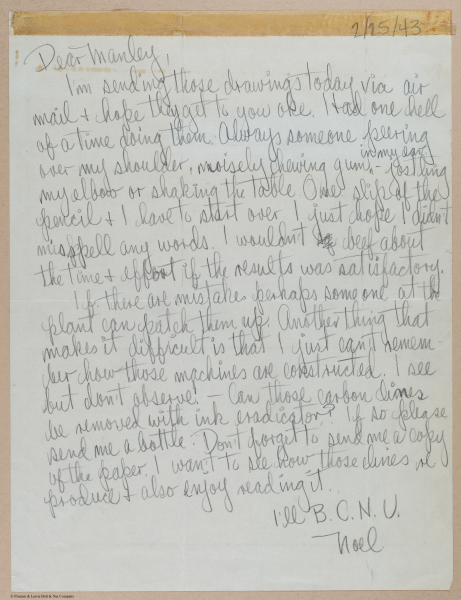 2/25/43
Dear Manley,
I'm sending those drawings today via air
mail & hope they get to you oke. I had one hell
of a time doing them. Always someone peering
over my shoulder, noisely chewing gum, - jostling
in my ear
my elbow or shaking the table. One slip of the
pencil & I have to start over. I just hope I didn't
misspell any words. I wouldn't beef about
the time & effort if the results was satisfactory.
If there are mistakes perhaps someone at the
plant can patch them up. Another thing that
makes it difficult is that I just can't remem-
ber how those machines are constructed. I see
but don't observe. - Can those carbon lines
be removed with ink eradicator? If so please
send me a bottle. Don't forget to send me a copy
of the paper. I want to see how those lines re
produce & also enjoy reading it.
I'll B.C.N.U.
Noel
© Pioneer & Lorca Bolt & Nut Company